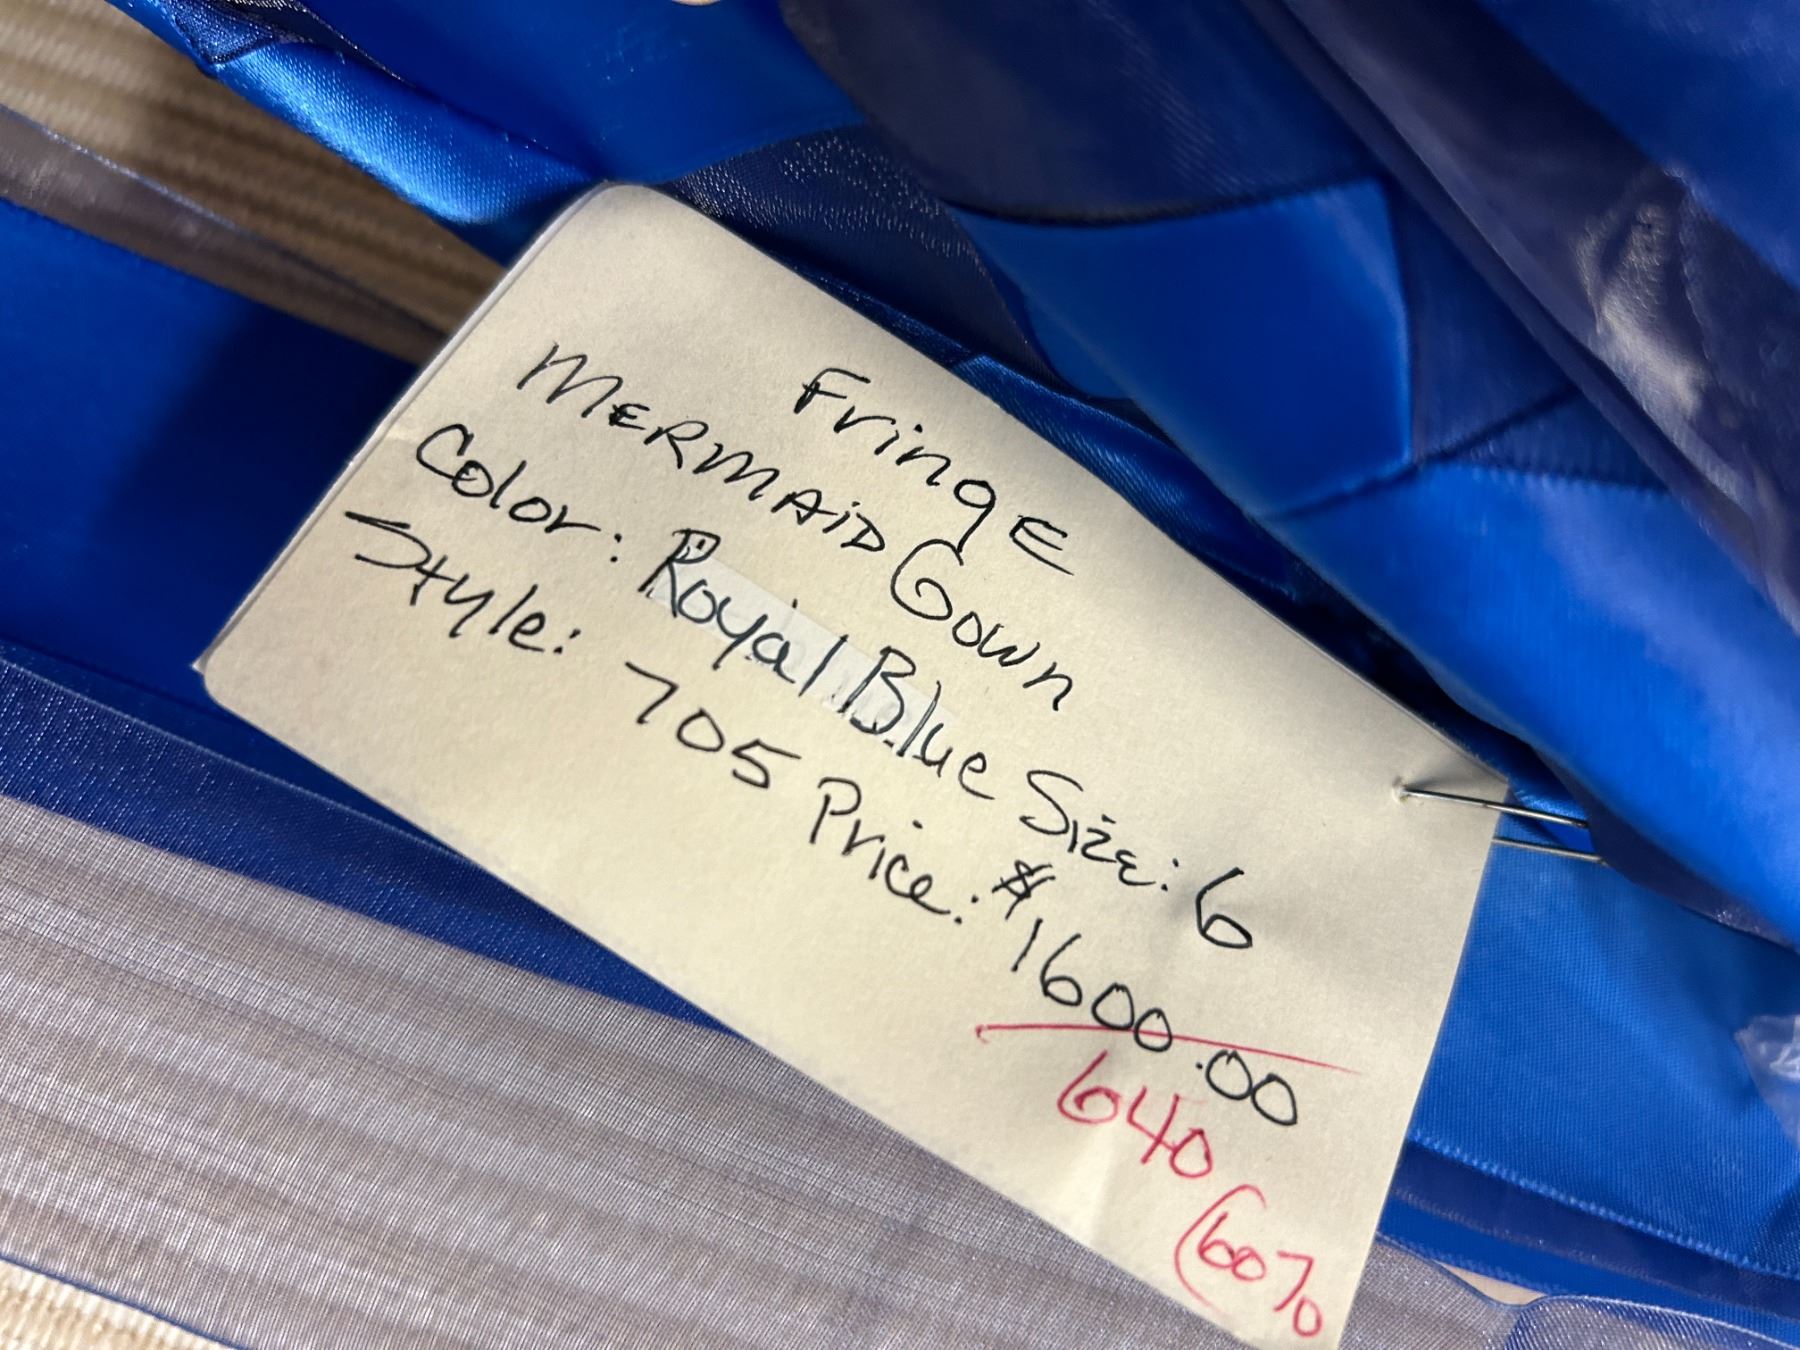 FringE
MERMAiD Gown
Color: Royal Blue Size: 6
Style: 705 Price: $1600.00
640
(60%